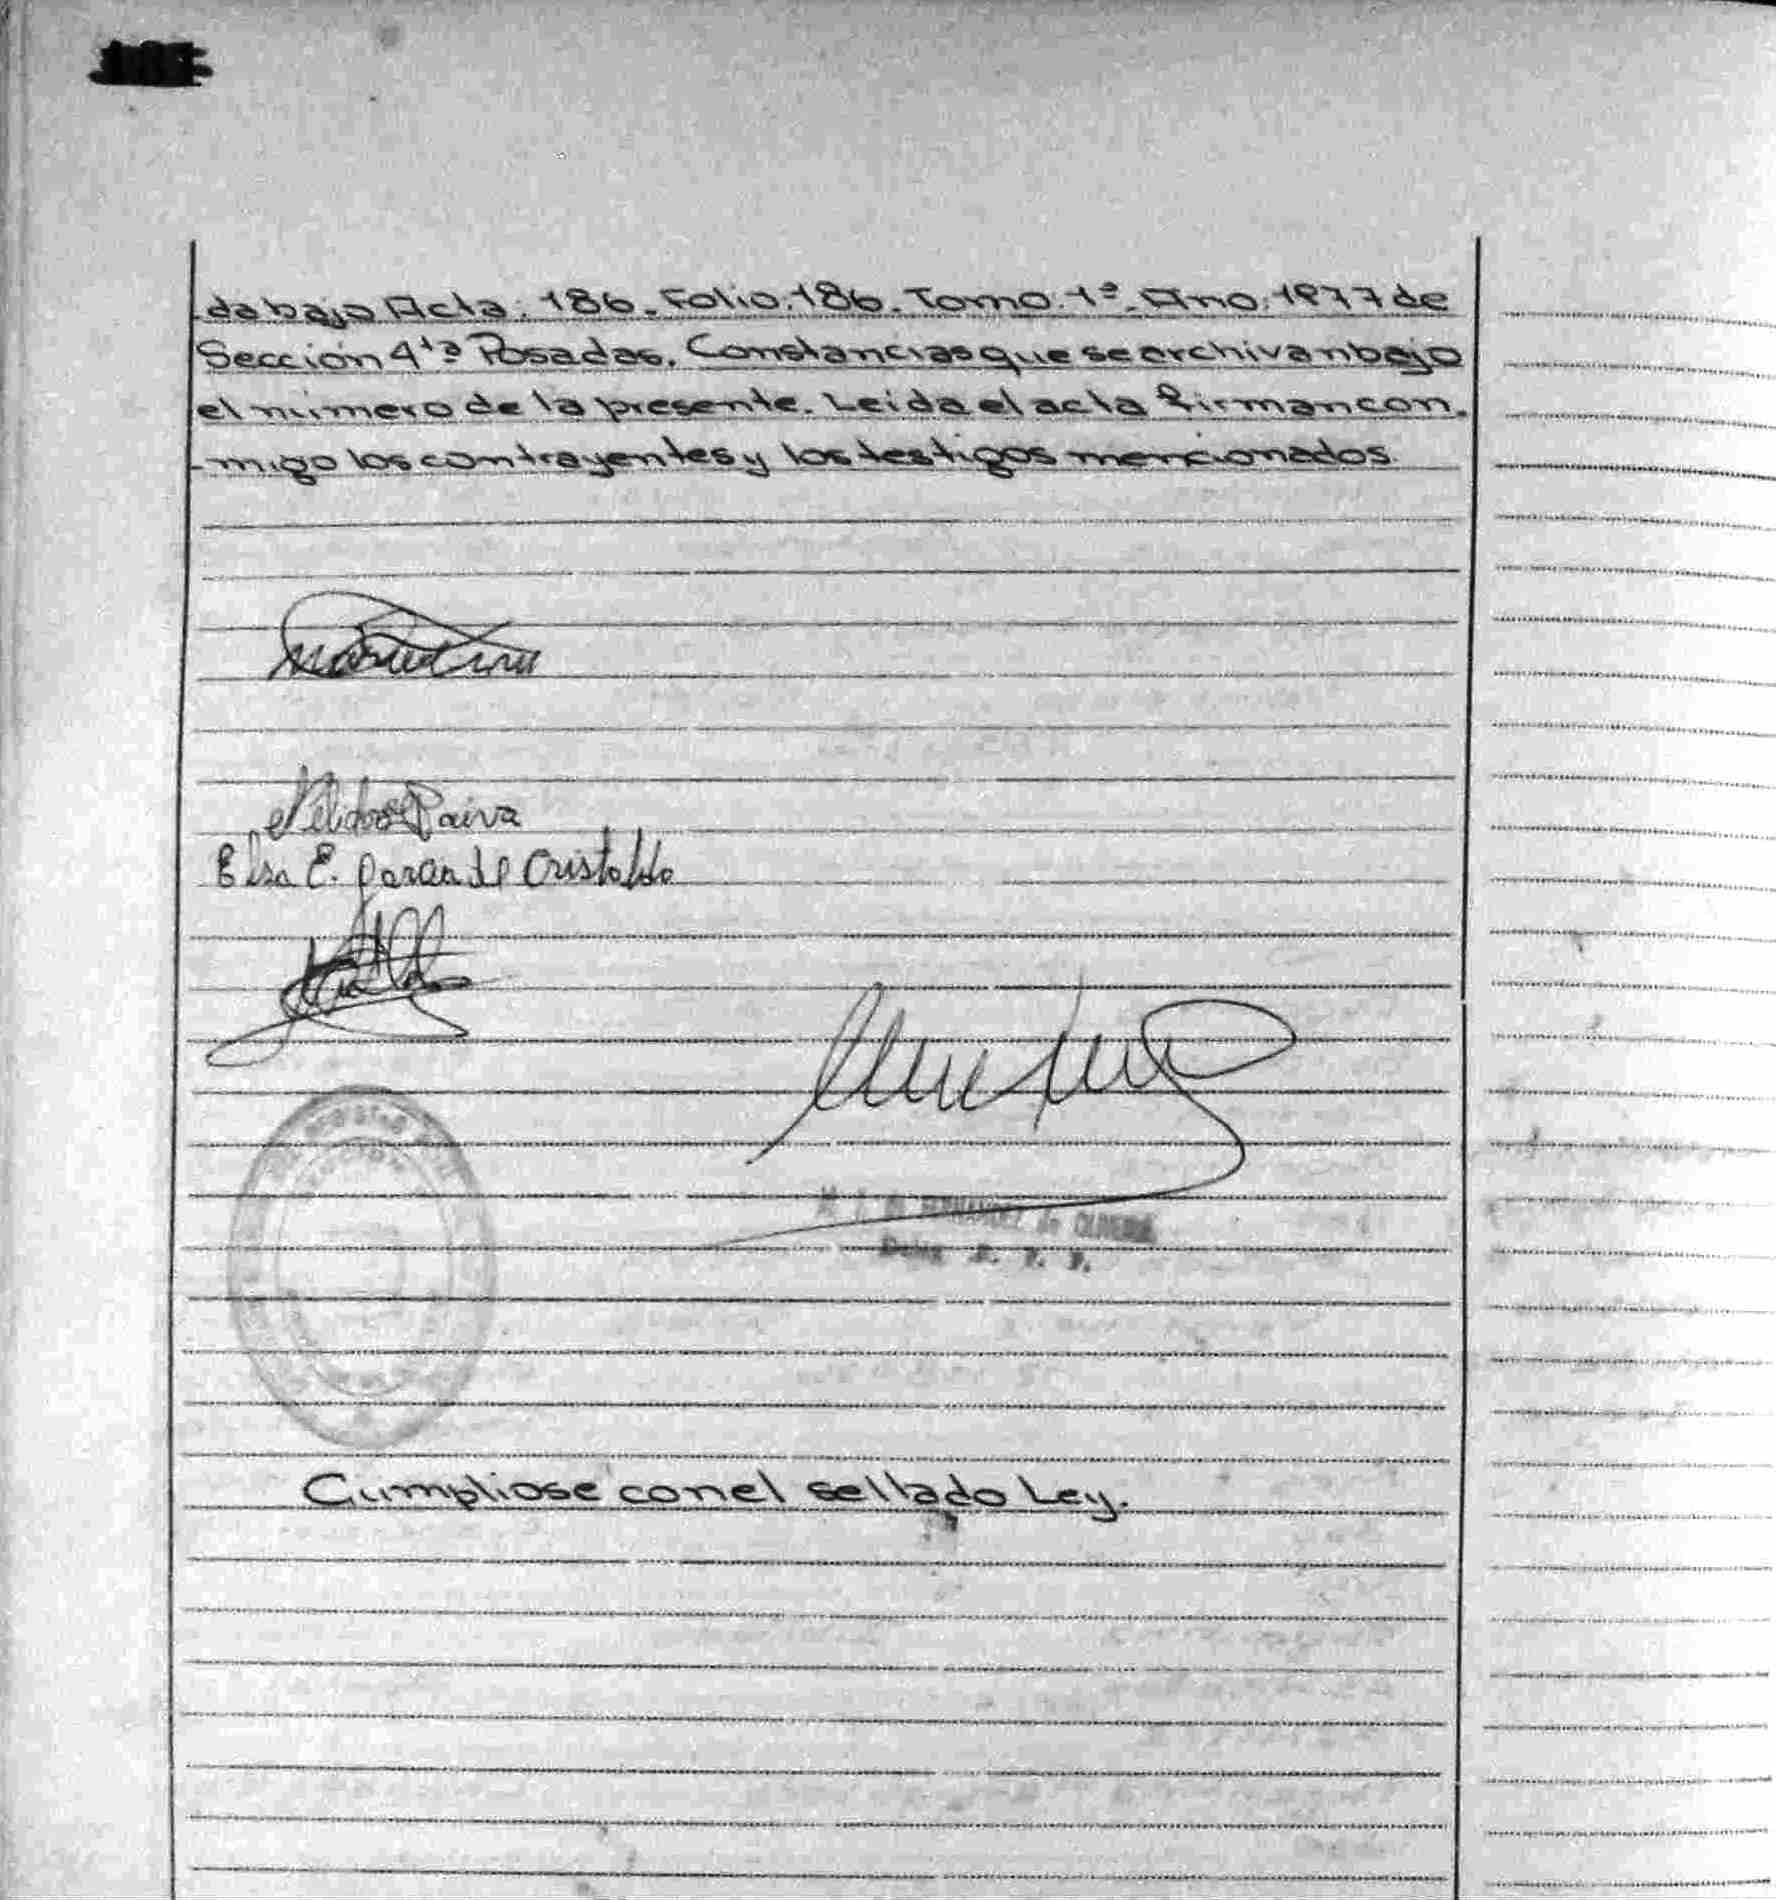 da bajo Acta: 186. Folio: 186. Tomo: 1º. Año: 1977 de
Sección 4ta Posadas. Constancias que se archivan bajo
el número de la presente. Leída el acta firman con.
-migo los contrayentes y los testigos mencionados.
Nelida Paiva
Elsa E. de Cristaldo
FERNANDEZ de
Cumpliose con el sellado Ley.